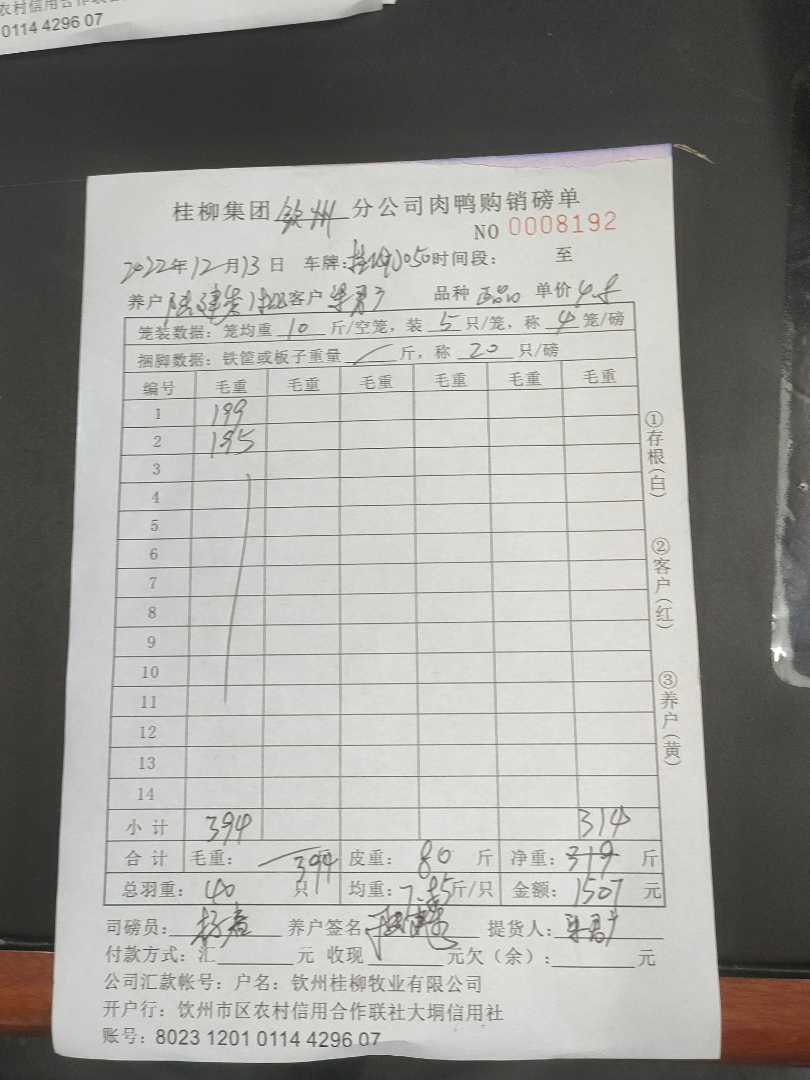 农村信用合作联社
0114 4296 07
桂柳集团 钦州 分公司肉鸭购销磅单
NO 0008192
2022年12月13日 车牌: 时间段: 至
养户 客户 品种 单价 4.8
笼装数据: 笼均重 10 斤/空笼, 装 5 只/笼, 称 4 笼/磅
捆脚数据: 铁筐或板子重量 / 斤, 称 20 只/磅
编号 毛重 毛重 毛重 毛重 毛重 毛重
1 199
2 195
3
4
5
6
7
8
9
10
11
12
13
14
小计 394 314
合计 毛重: 394 斤 皮重: 80 斤 净重: 314 斤
总羽重: 40 只 均重: 7.85 斤/只 金额: 1507 元
司磅员: 养户签名: 提货人:
付款方式: 汇 元 收现 元欠(余): 元
公司汇款帐号: 户名: 钦州桂柳牧业有限公司
开户行: 钦州市区农村信用合作联社大垌信用社
账号: 8023 1201 0114 4296 07
①存根(白)
②客户(红)
③养户(黄)